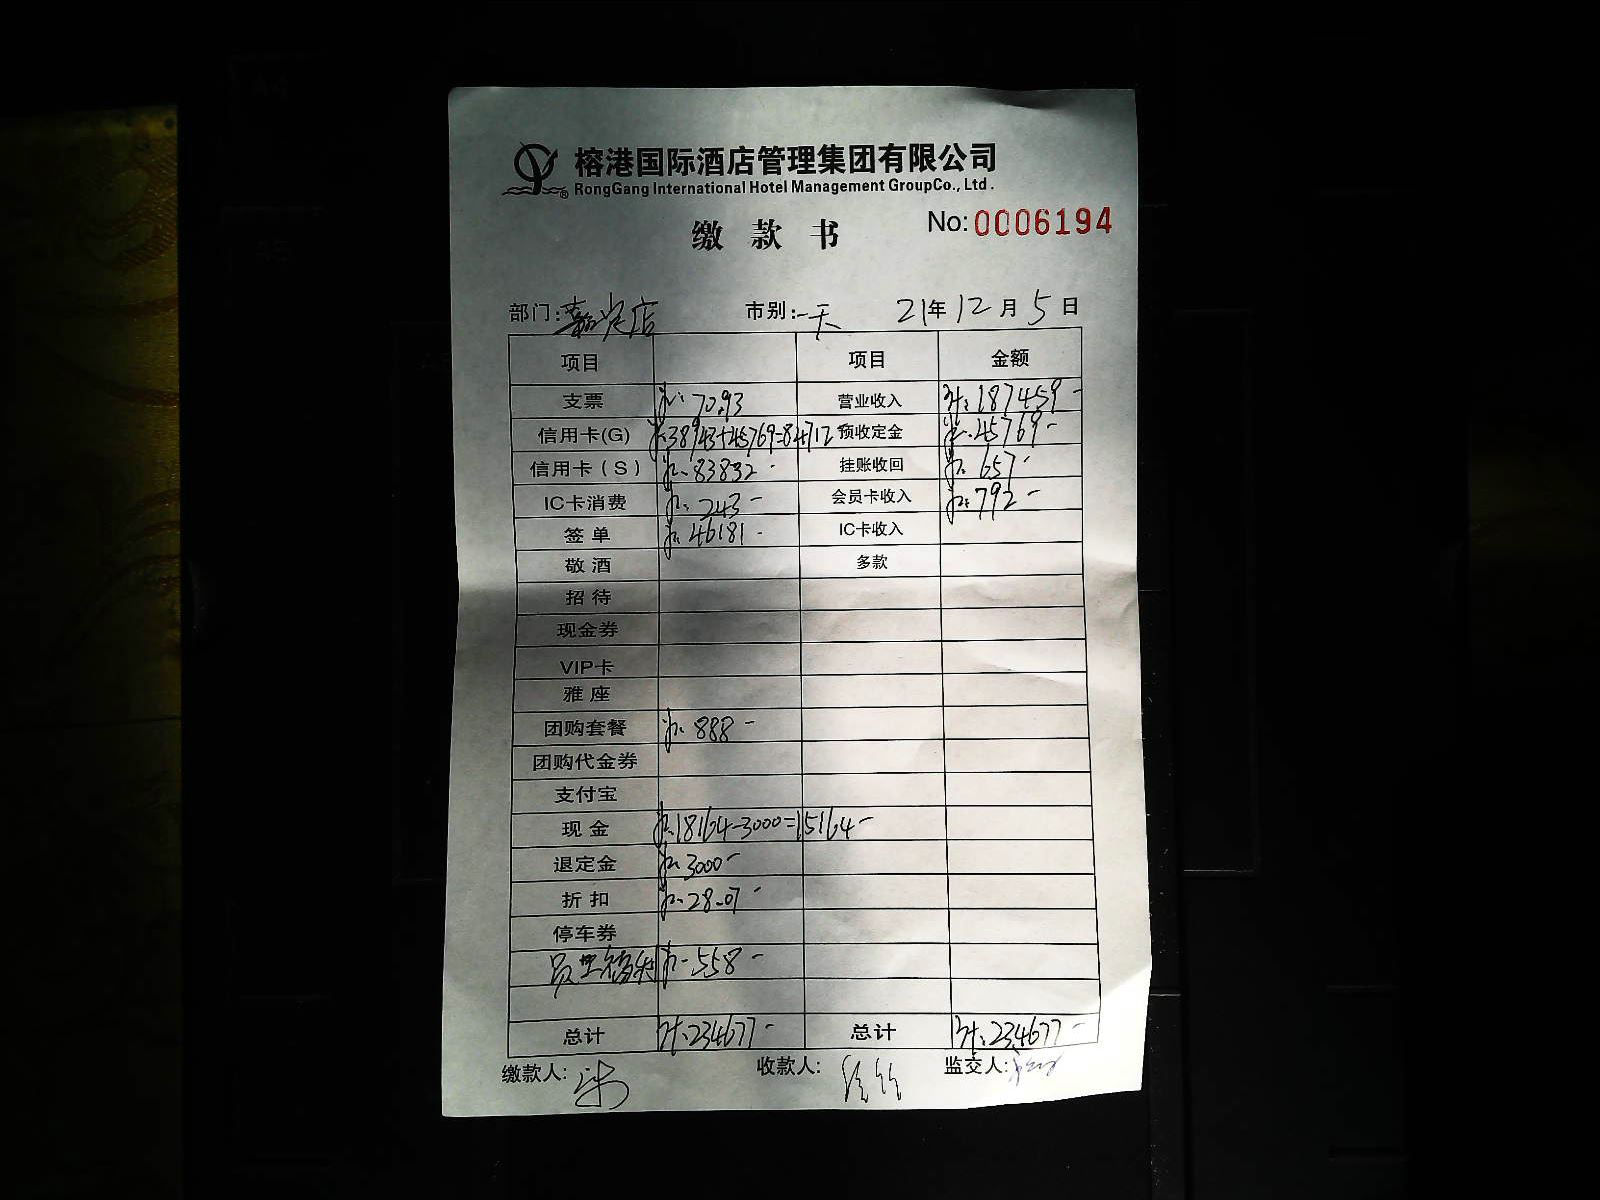 榕港国际酒店管理集团有限公司
RongGang International Hotel Management GroupCo., Ltd.
缴款书
No:0006194
部门:嘉定店 市别:一天 21年12月5日
项目 项目 金额
支票 计:70.93 营业收入 计:187459-
信用卡(G) 计:38943+45769=84712 预收定金 计:45769-
信用卡(S) 计:83832- 挂账收回 计:657-
IC卡消费 计:243- 会员卡收入 计:792-
签单 计:46181- IC卡收入
敬酒 多款
招待
现金券
VIP卡
雅座
团购套餐 计:888-
团购代金券
支付宝
现金 计:18164-3000=15164-
退定金 计:3000-
折扣 计:28.07-
停车券
员工福利 计:558-
总计 计:234677- 总计 计:234677-
缴款人: 收款人: 监交人: